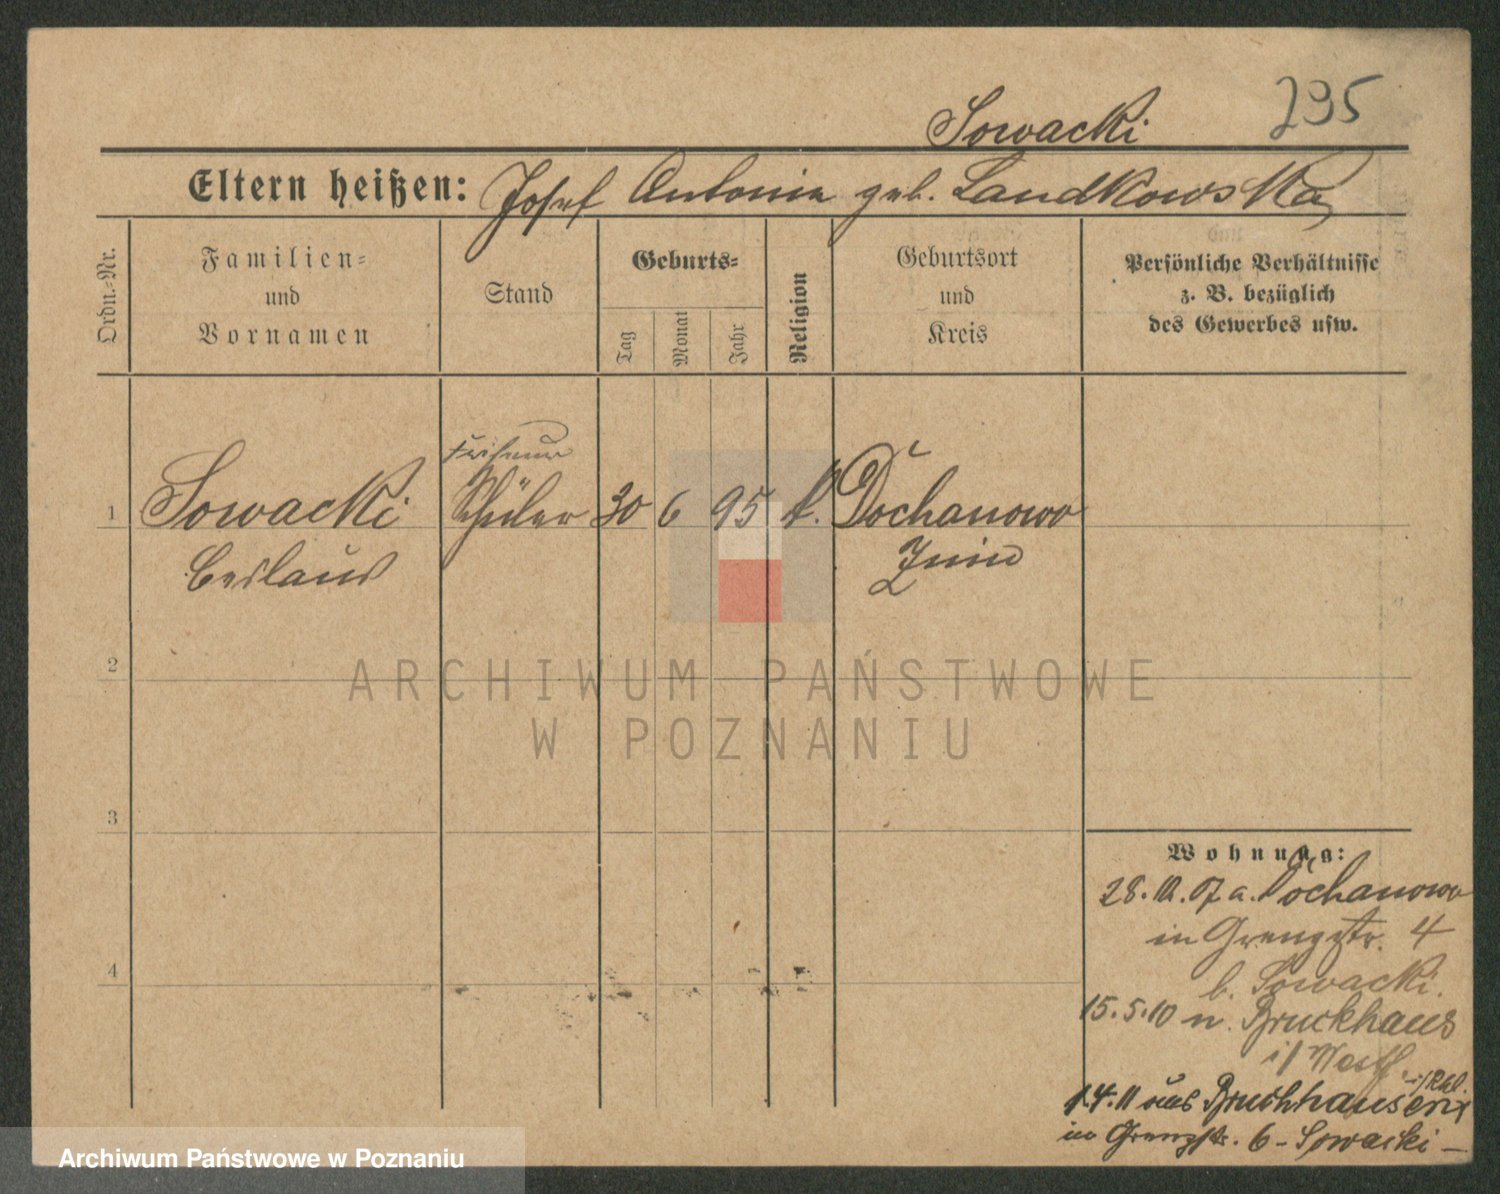 Sowacki 295
Eltern heißen: Josef Antonie geb. Landkowska
Ordn.-Nr.
Familien-
und
Vornamen
Stand
Geburts-
Tag
Monat
Jahr
Religion
Geburtsort
und
Kreis
Persönliche Verhältnisse
z. B. bezüglich
des Gewerbes usw.
1 Sowacki Schüler 30 6 95 k. Dochanowo
Ceslaus Znin
2
3
4
ARCHIWUM PAŃSTWOWE
W POZNANIU
Wohnung:
28. 10. 07 a. Dochanowo
in Grenzstr. 4
b. Sowacki.
15. 5. 10 n. Bruckhaus
i/ Westf.
1. 4. 11 aus Bruchhausen i/Rhl.
in Grenzstr. 6 - Sowacki -
Archiwum Państwowe w Poznaniu